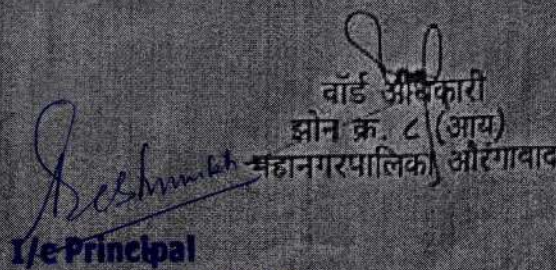 वॉर्ड अधिकारी
झोन क्र. ८ (आय)
महानगरपालिका औरंगाबाद
Deshmukh
I/e Principal